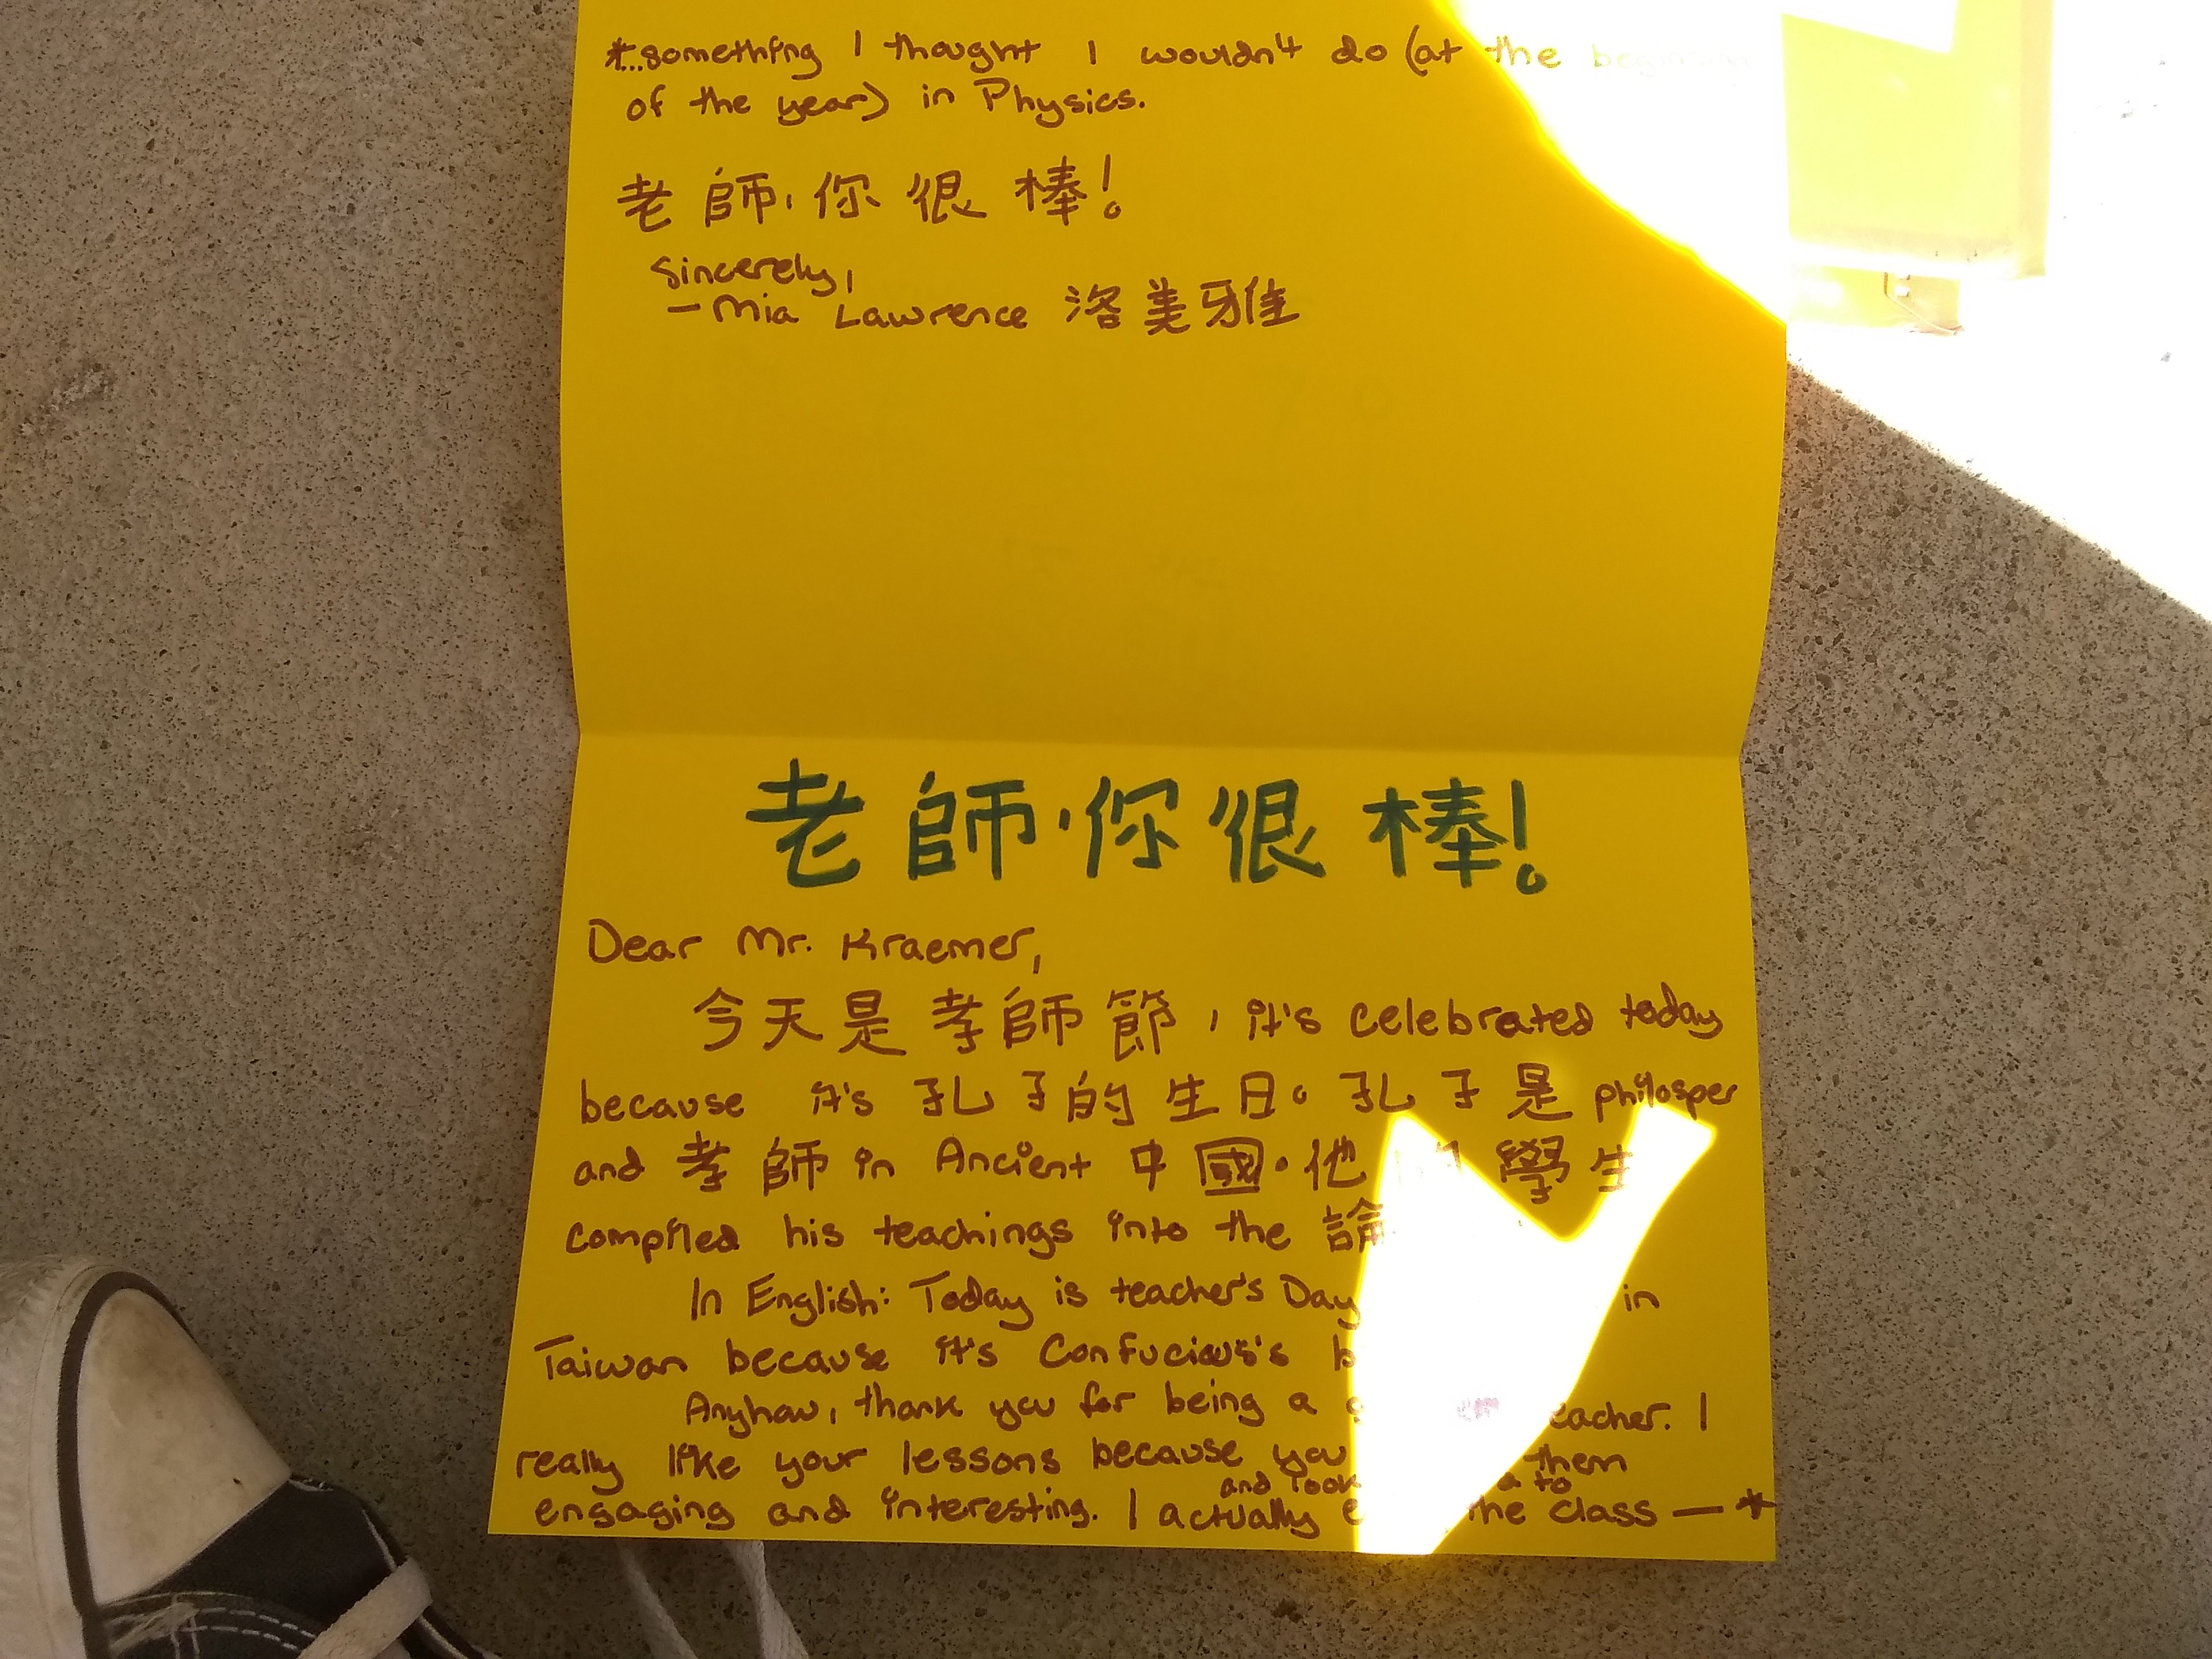 *...something I thought I wouldn't do (at the
of the year) in Physics.
老師,你很棒!
Sincerely,
- Mia Lawrence 洛美雅
老師,你很棒!
Dear Mr. Kraemer,
今天是孝師節, it's celebrated today
because it's 孔子的生日。孔子是 philosper
and 孝師 in Ancient 中國. 他 學生
compiled his teachings into the 論
In English: Today is teacher's Day in
Taiwan because it's Confucius's
Anyhow, thank you for being a teacher. I
really like your lessons because you them
and look to
engaging and interesting. I actually the class — *